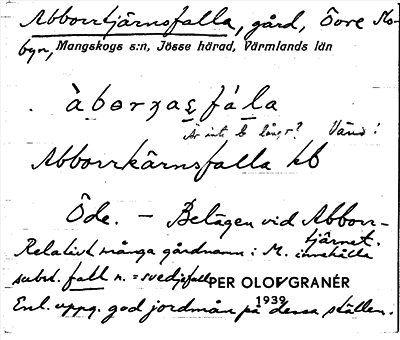 Abborrtjärnsfalla, gård, Övre Mo-
byn, Mangskogs s:n, Jösse härad, Värmlands län
Är inte b långt? Vänd!
Abborrkärnsfalla kb
Öde. – Belägen vid Abborr-
tjärnet.
Relativt många gårdnamn i M. innehålla
subst. fall n. = svedjefall
PER OLOV GRANÉR
1939
Enl. uppg. god jordmån på dessa ställen.